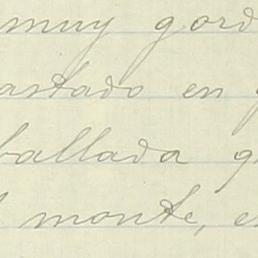 muy gord
astado en
ballada g
monte, e